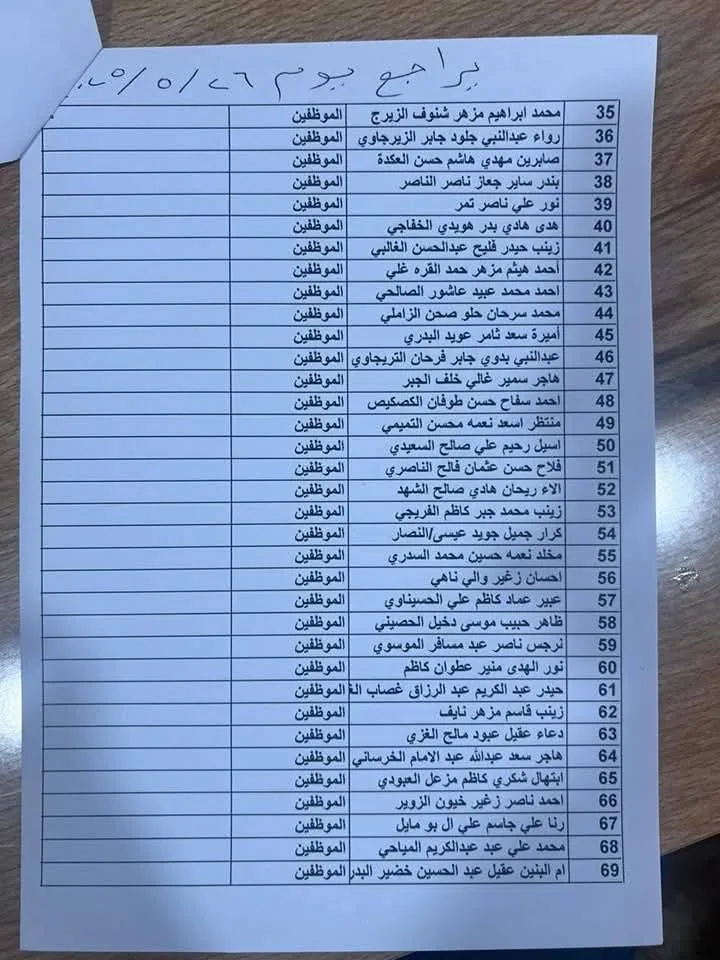 يراجع يوم ٢٦ / ٥ /
35 محمد ابراهيم مزهر شنوف الزيرج الموظفين
36 رواء عبدالنبي جلود جابر الزيرجاوي الموظفين
37 صابرين مهدي هاشم حسن العكدة الموظفين
38 بندر ساير جعاز ناصر الناصر الموظفين
39 نور علي ناصر تمر الموظفين
40 هدى هادي بدر هويدي الخفاجي الموظفين
41 زينب حيدر فليح عبدالحسن الغالبي الموظفين
42 أحمد هيثم مزهر حمد القره غلي الموظفين
43 احمد محمد عبيد عاشور الصالحي الموظفين
44 محمد سرحان حلو صحن الزاملي الموظفين
45 أميرة سعد ثامر عويد البدري الموظفين
46 عبدالنبي بدوي جابر فرحان التريجاوي الموظفين
47 هاجر سمير غالي خلف الجبر الموظفين
48 احمد سفاح حسن طوفان الكصكيص الموظفين
49 منتظر اسعد نعمه محسن التميمي الموظفين
50 اسيل رحيم علي صالح السعيدي الموظفين
51 فلاح حسن عثمان فالح الناصري الموظفين
52 الاء ريحان هادي صالح الشهد الموظفين
53 زينب محمد جبر كاظم الفريجي الموظفين
54 كرار جميل جويد عيسى/النصار الموظفين
55 مخلد نعمه حسين محمد السدري الموظفين
56 احسان زغير والي ناهي الموظفين
57 عبير عماد كاظم علي الحسيناوي الموظفين
58 ظاهر حبيب موسى دخيل الحصيني الموظفين
59 نرجس ناصر عبد مسافر الموسوي الموظفين
60 نور الهدى منير عطوان كاظم الموظفين
61 حيدر عبد الكريم عبد الرزاق غصاب الغ الموظفين
62 زينب قاسم مزهر نايف الموظفين
63 دعاء عقيل عبود مالح الغزي الموظفين
64 هاجر سعد عبدالله عبد الامام الخرساني الموظفين
65 ابتهال شكري كاظم مزعل العبودي الموظفين
66 احمد ناصر زغير خيون الزوير الموظفين
67 رنا علي جاسم علي ال بو مايل الموظفين
68 محمد علي عبد عبدالكريم المياحي الموظفين
69 ام البنين عقيل عبد الحسين خضير البدر الموظفين